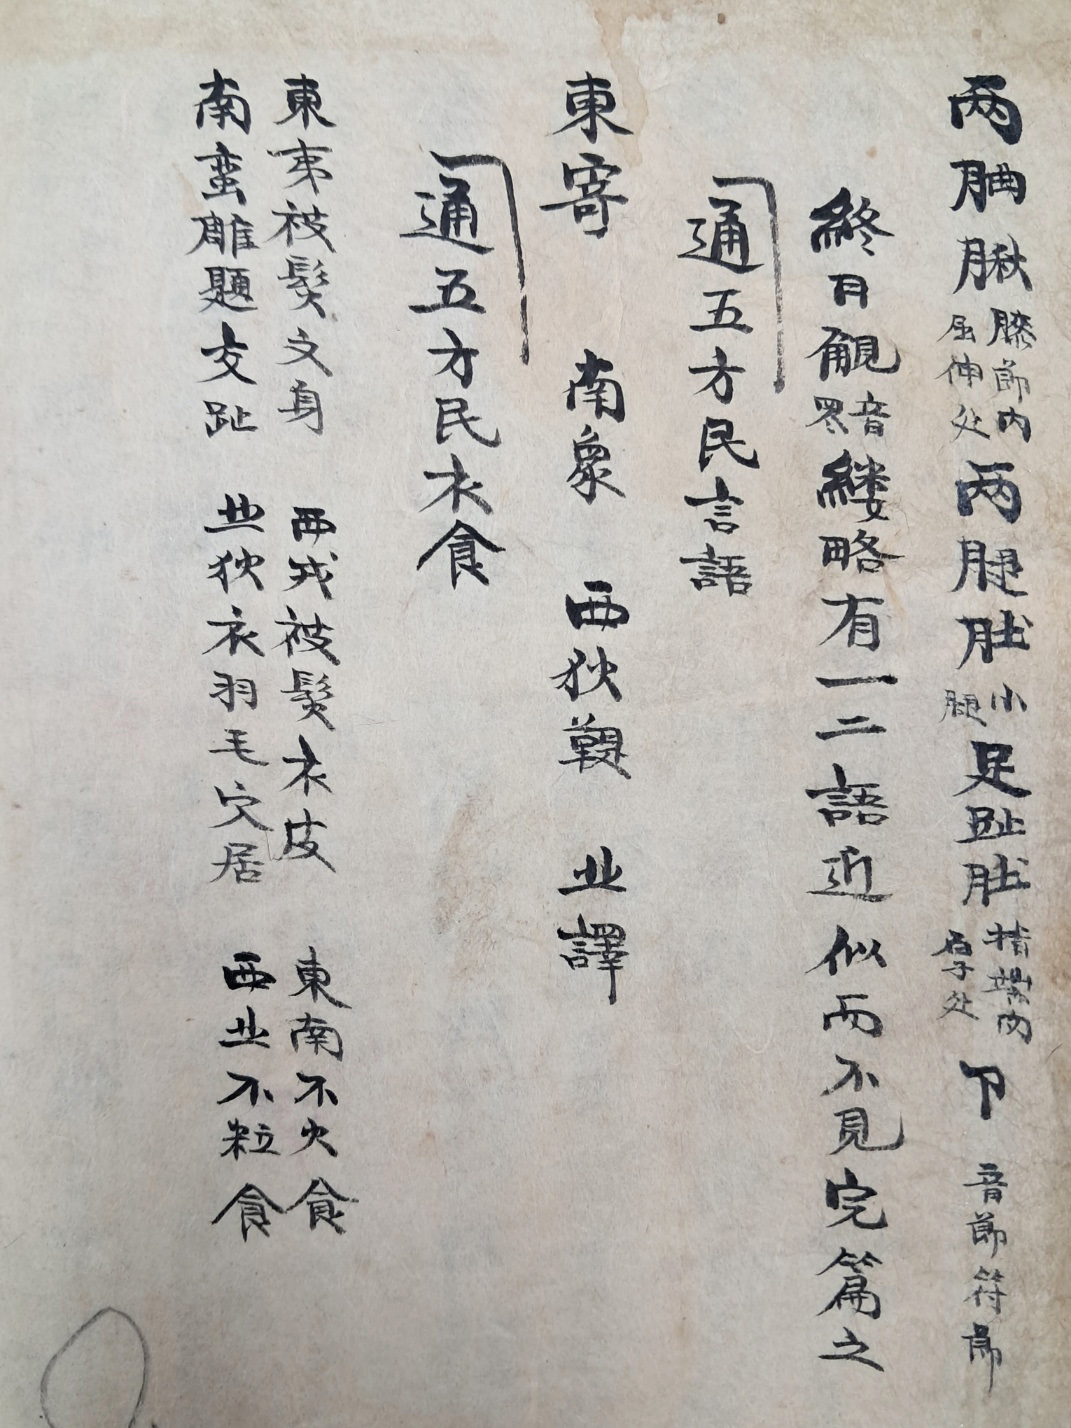 两䏰脙膝節内屈伸处两腿肚小腿足趾肚指端内厚处卩音節符節
終日覶音罗縷略有一二語近似而不見完篇之
通五方民言語
東寄 南象 西狄鞮 北譯
通五方民衣食
東夷被髮文身 西戎被髮衣皮 東南不火食
南蛮雕題交趾 北狄衣羽毛穴居 西北不粒食